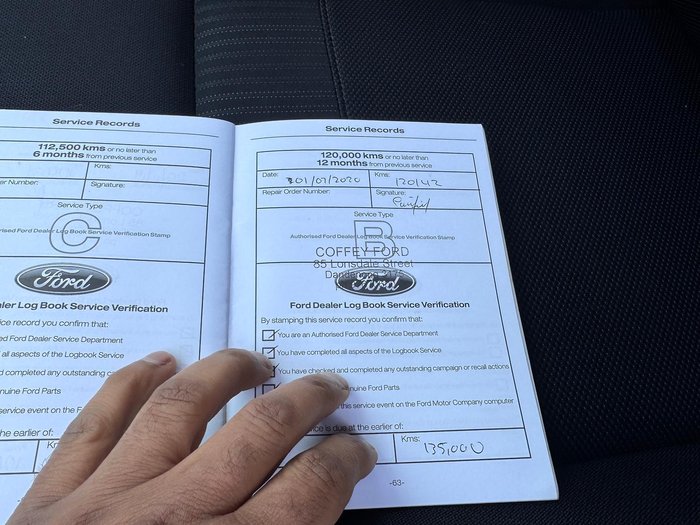 Service Records
112,500 kms or no later than
6 months from previous service
Kms:
Number:
Signature:
Service Type
C
Ford Dealer Log Book Service Verification Stamp
Ford
Log Book Service Verification
service record you confirm that:
Ford Dealer Service Department
all aspects of the Logbook Service
and completed any outstanding
Ford Parts
service event on the
the earlier of:
Service Records
120,000 kms or no later than
12 months from previous service
Date: 01/07/2020
Kms: 120142
Repair Order Number:
Signature:
Service Type
B
Authorised Ford Dealer Log Book Service Verification Stamp
COFFEY FORD
85 Lonsdale Street
Ford
Ford Dealer Log Book Service Verification
By stamping this service record you confirm that:
You are an Authorised Ford Dealer Service Department
You have completed all aspects of the Logbook Service
You have checked and completed any outstanding campaign or recall actions
Ford Parts
this service event on the Ford Motor Company computer
is due at the earlier of:
Kms: 135,000
-63-